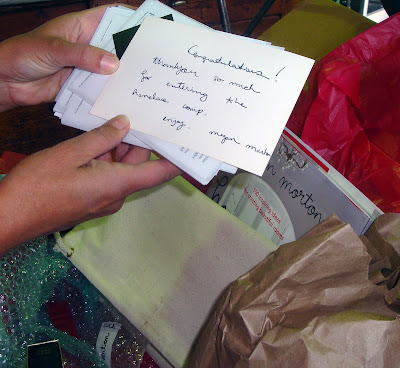 Congratulations!
Thankyou so much
for entering the
comp.
enjoy. megan morton
n morton